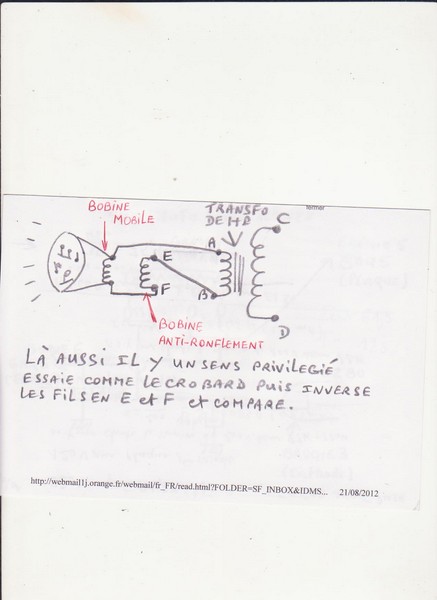 fermer
BOBINE
MOBILE
TRANSFO
DE HP
C
A
E
F
B
D
BOBINE
ANTI-RONFLEMENT
LÀ AUSSI IL Y UN SENS PRIVILEGIÉ
ESSAIE COMME LE CROBARD PUIS INVERSE
LES FILS EN E et F et COMPARE.
http://webmail1j.orange.fr/webmail/fr_FR/read.html?FOLDER=SF_INBOX&IDMS... 21/08/2012